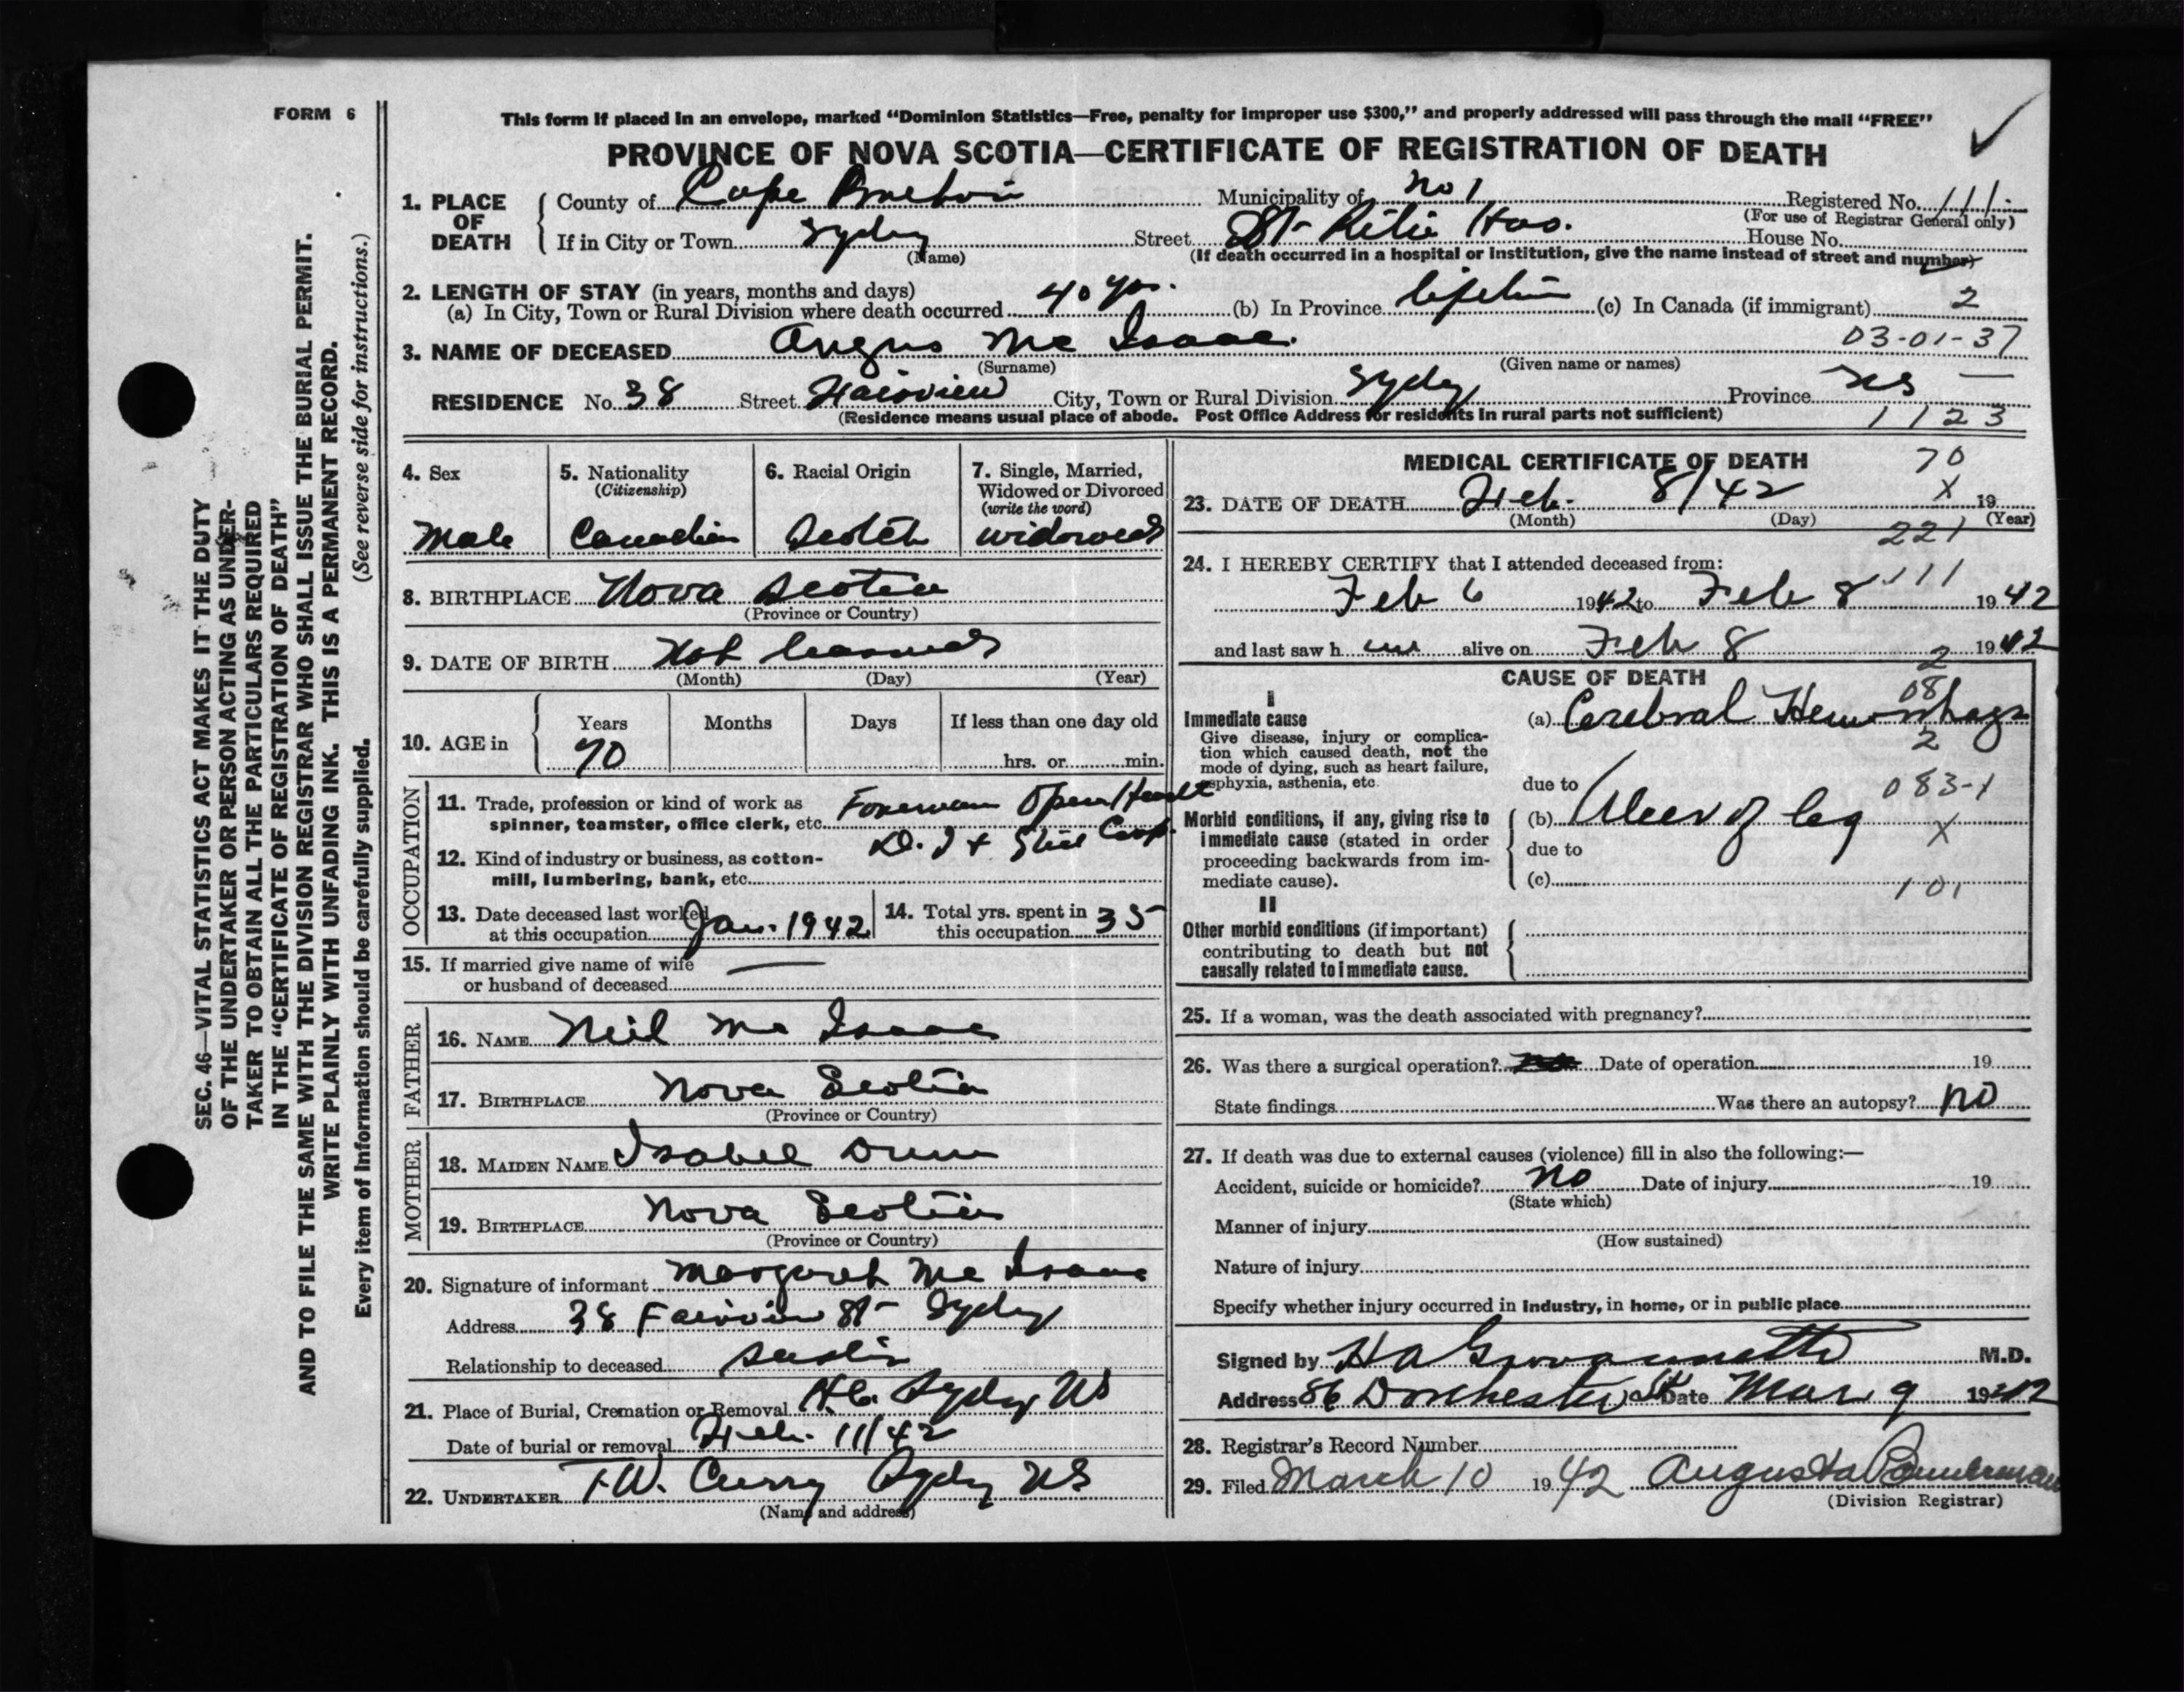 FORM 6
This form if placed in an envelope, marked “Dominion Statistics—Free, penalty for improper use $300,” and properly addressed will pass through the mail “FREE”
PROVINCE OF NOVA SCOTIA—CERTIFICATE OF REGISTRATION OF DEATH
SEC. 46—VITAL STATISTICS ACT MAKES IT THE DUTY
OF THE UNDERTAKER OR PERSON ACTING AS UNDER-
TAKER TO OBTAIN ALL THE PARTICULARS REQUIRED
IN THE “CERTIFICATE OF REGISTRATION OF DEATH”
AND TO FILE THE SAME WITH THE DIVISION REGISTRAR WHO SHALL ISSUE THE BURIAL PERMIT.
WRITE PLAINLY WITH UNFADING INK. THIS IS A PERMANENT RECORD.
Every item of Information should be carefully supplied. (See reverse side for instructions.)
1. PLACE OF DEATH County of Cape Breton Municipality of No 1 Registered No. 111
(For use of Registrar General only)
If in City or Town Sydney Street St Rita Hos. House No.
(Name) (If death occurred in a hospital or institution, give the name instead of street and number)
2. LENGTH OF STAY (in years, months and days)
(a) In City, Town or Rural Division where death occurred 40 yrs. (b) In Province lifetime (c) In Canada (if immigrant) 2
3. NAME OF DECEASED Angus Mc Isaac. 03-01-37
(Surname) (Given name or names)
RESIDENCE No. 38 Street Fairview City, Town or Rural Division Sydney Province NS —
(Residence means usual place of abode. Post Office Address for residents in rural parts not sufficient) 1123
4. Sex
Male
5. Nationality
(Citizenship)
Canadian
6. Racial Origin
Scotch
7. Single, Married,
Widowed or Divorced
(write the word)
widowed
8. BIRTHPLACE Nova Scotia
(Province or Country)
9. DATE OF BIRTH Not learned
(Month) (Day) (Year)
10. AGE in Years Months Days If less than one day old
70 hrs. or min.
OCCUPATION
11. Trade, profession or kind of work as Foreman Open Hearth
spinner, teamster, office clerk, etc.
12. Kind of industry or business, as cotton- D. I + Steel Corp.
mill, lumbering, bank, etc.
13. Date deceased last worked
at this occupation Jan. 1942
14. Total yrs. spent in
this occupation 35
15. If married give name of wife —
or husband of deceased
FATHER
16. NAME Neil Mc Isaac
17. BIRTHPLACE Nova Scotia
(Province or Country)
MOTHER
18. MAIDEN NAME Isabel
19. BIRTHPLACE Nova Scotia
(Province or Country)
20. Signature of informant Margaret Mc Isaac
Address 38 Fairview St Sydney
Relationship to deceased
21. Place of Burial, Cremation or Removal H.C. Sydney NS
Date of burial or removal Feb. 11/42
22. UNDERTAKER T.W. Curry Sydney NS
(Name and address)
MEDICAL CERTIFICATE OF DEATH 70
23. DATE OF DEATH Feb. 8/42 X 19
(Month) (Day) (Year)
221
24. I HEREBY CERTIFY that I attended deceased from:
111
Feb 6 1942 to Feb 8 1942
and last saw h im alive on Feb 8 1942
2
CAUSE OF DEATH
08
I
Immediate cause
Give disease, injury or complica-
tion which caused death, not the
mode of dying, such as heart failure,
asphyxia, asthenia, etc.
(a) Cerebral Hemorrhage
2
due to 083-1
Morbid conditions, if any, giving rise to
immediate cause (stated in order
proceeding backwards from im-
mediate cause).
(b) Ulcer of leg
X
due to
(c) 101
II
Other morbid conditions (if important)
contributing to death but not
causally related to immediate cause.
25. If a woman, was the death associated with pregnancy?
26. Was there a surgical operation? Date of operation 19
State findings Was there an autopsy? no
27. If death was due to external causes (violence) fill in also the following:—
Accident, suicide or homicide? no Date of injury 19
(State which)
Manner of injury
(How sustained)
Nature of injury
Specify whether injury occurred in industry, in home, or in public place
Signed by H A Giovannetti M.D.
Address 86 Dorchester St Date Mar 9 1942
28. Registrar's Record Number
29. Filed March 10 1942 Augusta Bannerman
(Division Registrar)